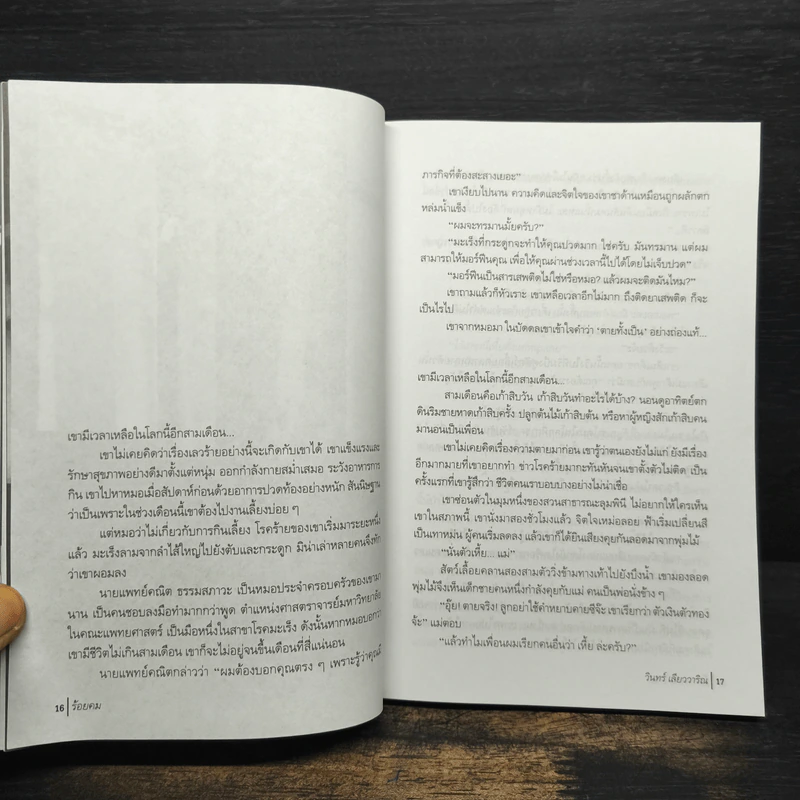 เขามีเวลาเหลือในโลกนี้อีกสามเดือน...
เขาไม่เคยคิดว่าเรื่องเลวร้ายอย่างนี้จะเกิดกับเขาได้ เขาแข็งแรงและ
รักษาสุขภาพอย่างดีมาตั้งแต่หนุ่ม ออกกำลังกายสม่ำเสมอ ระวังอาหารการ
กิน เขาไปหาหมอเมื่อสัปดาห์ก่อนด้วยอาการปวดท้องอย่างหนัก สันนิษฐาน
ว่าเป็นเพราะในช่วงเดือนนี้เขาต้องไปงานเลี้ยงบ่อย ๆ
แต่หมอว่าไม่เกี่ยวกับการกินเลี้ยง โรคร้ายของเขาเริ่มมาระยะหนึ่ง
แล้ว มะเร็งลามจากลำไส้ใหญ่ไปยังตับและกระดูก มิน่าเล่าหลายคนจึงทัก
ว่าเขาผอมลง
นายแพทย์คณิต ธรรมสภาวะ เป็นหมอประจำครอบครัวของเขามา
นาน เป็นคนชอบลงมือทำมากกว่าพูด ตำแหน่งศาสตราจารย์มหาวิทยาลัย
ในคณะแพทยศาสตร์ เป็นมือหนึ่งในสาขาโรคมะเร็ง ดังนั้นหากหมอบอกว่า
เขามีชีวิตไม่เกินสามเดือน เขาก็จะไม่อยู่จนขึ้นเดือนที่สี่แน่นอน
นายแพทย์คณิตกล่าวว่า “ผมต้องบอกคุณตรง ๆ เพราะรู้ว่าคุณมี
16 ร้อยคม
ภารกิจที่ต้องสะสางเยอะ”
เขาเงียบไปนาน ความคิดและจิตใจของเขาชาด้านเหมือนถูกผลักตก
หล่มน้ำแข็ง
“ผมจะทรมานมั้ยครับ?”
“มะเร็งที่กระดูกจะทำให้คุณปวดมาก ใช่ครับ มันทรมาน แต่ผม
สามารถให้มอร์ฟีนคุณ เพื่อให้คุณผ่านช่วงเวลานี้ไปได้โดยไม่เจ็บปวด”
“มอร์ฟีนเป็นสารเสพติดไม่ใช่หรือหมอ? แล้วผมจะติดมันไหม?”
เขาถามแล้วก็หัวเราะ เขาเหลือเวลาอีกไม่มาก ถึงติดยาเสพติด ก็จะ
เป็นไรไป
เขาจากหมอมา ในบัดดลเขาเข้าใจคำว่า ‘ตายทั้งเป็น’ อย่างถ่องแท้...
เขามีเวลาเหลือในโลกนี้อีกสามเดือน...
สามเดือนคือเก้าสิบวัน เก้าสิบวันทำอะไรได้บ้าง? นอนดูอาทิตย์ตก
ดินริมชายหาดเก้าสิบครั้ง ปลูกต้นไม้เก้าสิบต้น หรือหาผู้หญิงสักเก้าสิบคน
มานอนเป็นเพื่อน
เขาไม่เคยคิดเรื่องความตายมาก่อน เขารู้ว่าตนเองยังไม่แก่ ยังมีเรื่อง
อีกมากมายที่เขาอยากทำ ข่าวโรคร้ายมากะทันหันจนเขาตั้งตัวไม่ติด เป็น
ครั้งแรกที่เขารู้สึกว่า ชีวิตคนเราบอบบางอย่างไม่น่าเชื่อ
เขาซ่อนตัวในมุมหนึ่งของสวนสาธารณะลุมพินี ไม่อยากให้ใครเห็น
เขาในสภาพนี้ เขานั่งมาสองชั่วโมงแล้ว จิตใจเหม่อลอย ฟ้าเริ่มเปลี่ยนสี
เป็นเทาหม่น ผู้คนเริ่มลดลง แล้วเขาก็ได้ยินเสียงคุยกันลอดมาจากพุ่มไม้
“นั่นตัวเหี้ย... แม่”
สัตว์เลื้อยคลานสองสามตัววิ่งข้ามทางเท้าไปยังบึงน้ำ เขามองลอด
พุ่มไม้จึงเห็นเด็กชายคนหนึ่งกำลังคุยกับแม่ คนเป็นพ่อนั่งข้าง ๆ
“อุ๊ย! ตายจริง! ลูกอย่าใช้คำหยาบคายซีจ๊ะ เขาเรียกว่า ตัวเงินตัวทอง
จ้ะ” แม่ตอบ
“แล้วทำไมเพื่อนผมเรียกคนอื่นว่า เหี้ย ล่ะครับ?”
วินทร์ เลียววาริณ 17